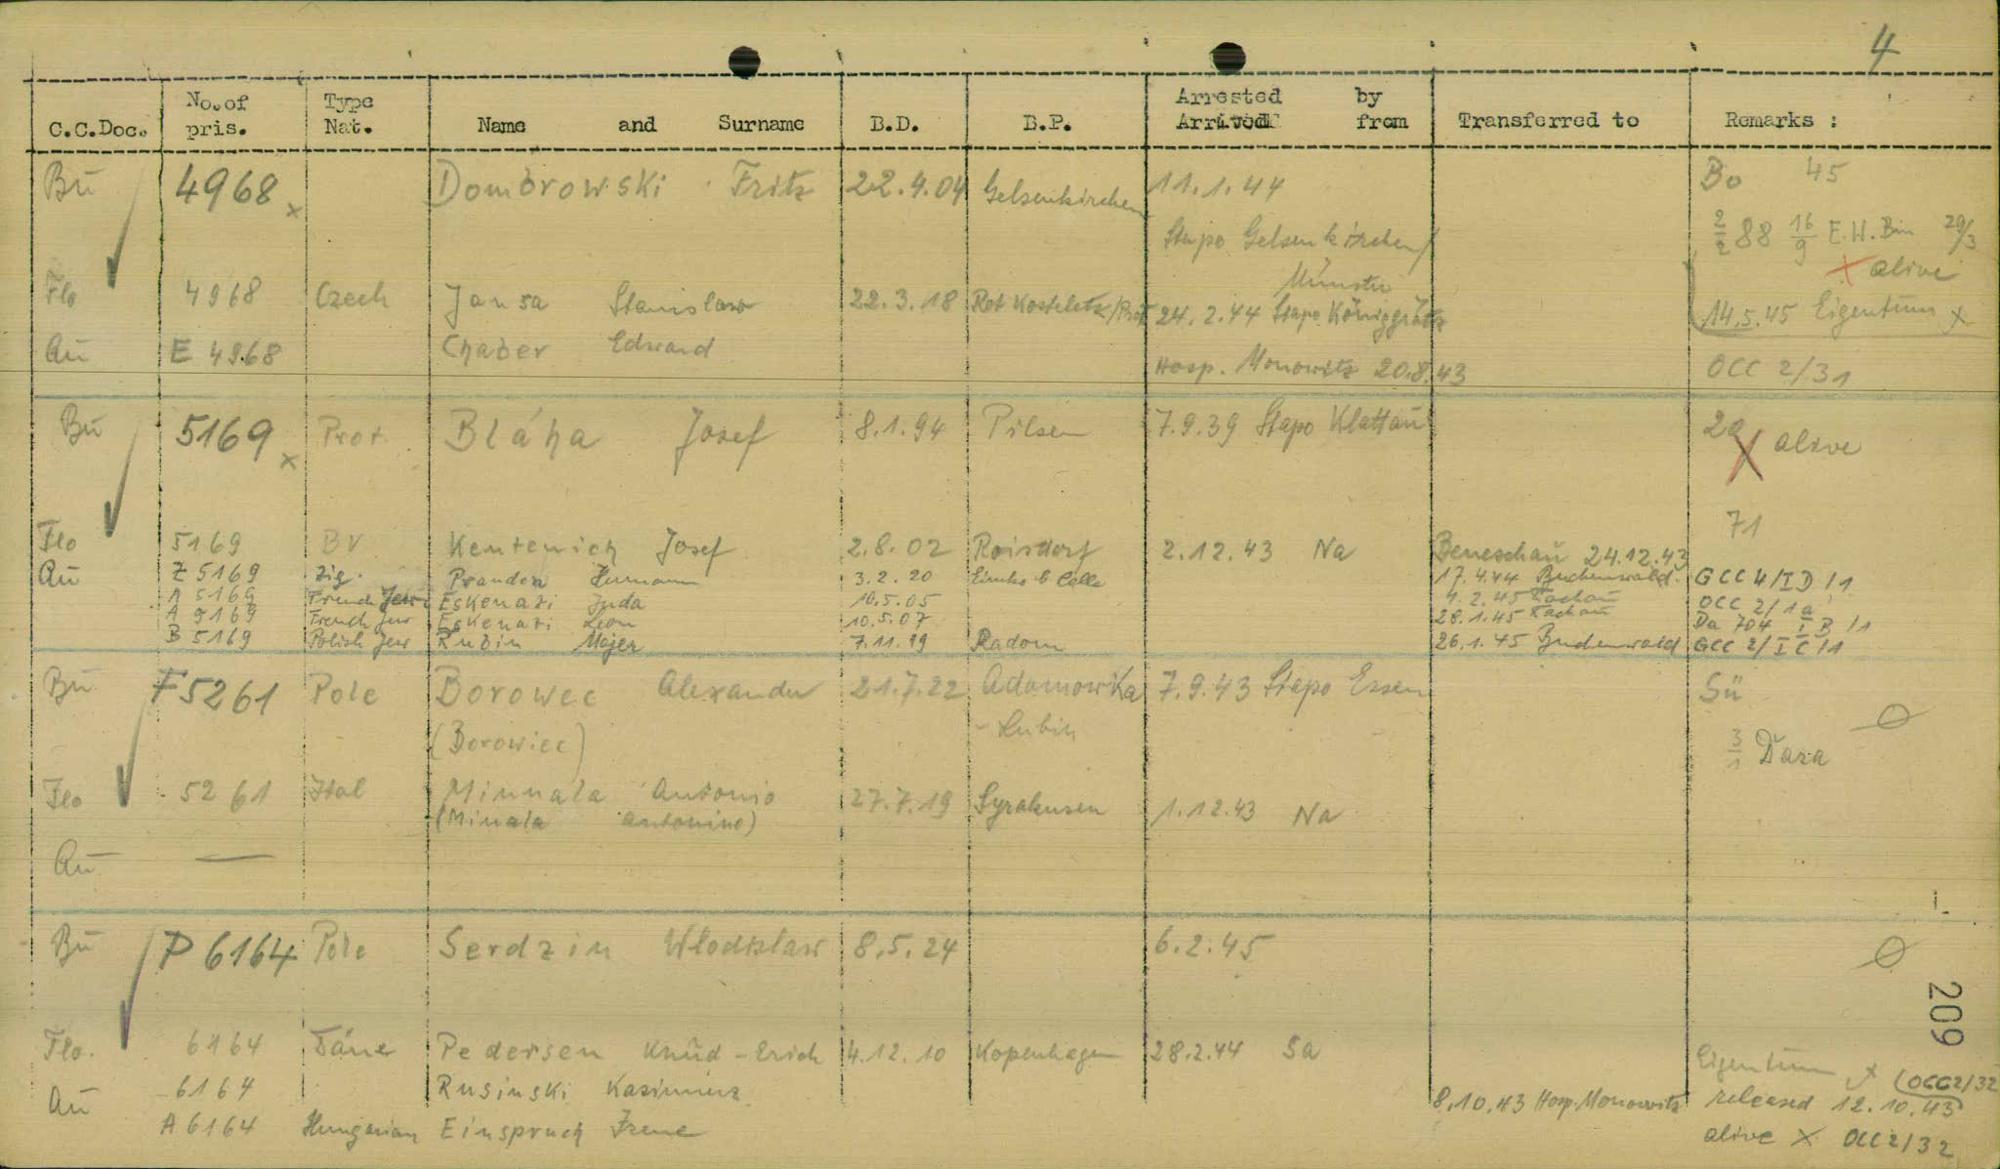 4
C.C.Doc. No. of pris. Type Nat. Name and Surname B.D. B.P. Arrested by Arrived from Transferred to Remarks :
Bu 4968 x Dombrowski Fritz 22.4.04 Gelsenkirchen 11.1.44 Bo 45
Stapo Gelsenkirchen/ 2/2 88 16/9 E.H. Bin 29/3
Münster x alive
Flo 4968 Czech Jansa Stanislaw 22.3.18 Rot Kosteletz/Prot 24.2.44 Stapo Königgrätz 14.5.45 Eigentum x
Au E 4968 Chaber Edward Hosp. Monowitz 20.8.43 OCC 2/31
Bu 5169 x Prot. Bláha Josef 8.1.94 Pilsen 7.9.39 Stapo Klattau 20 X alive
71
Flo 5169 BV Kentenich Josef 2.8.02 Roisdorf 2.12.43 Na Beneschau 24.12.43
Au Z 5169 Zig. Prandon Hermann 3.2.20 b Celle 17.4.44 Buchenwald. GCC 4/ID/1
A 5169 French Jew Eskenazi Juda 10.5.05 4.2.45 Dachau OCC 2/1a
A 5169 French Jew Eskenazi Leon 10.5.07 28.1.45 Dachau Da 704 I B/1
B 5169 Polish Jew Rubin Majer 7.11.19 Radom 26.1.45 Buchenwald GCC 2/IC/1
Bu F5261 Pole Borowec Alexander 21.7.22 Adamowka 7.9.43 Stapo Essen Sü
(Borowiec) - Lubin Ø
3/1 Dara
Flo 5261 Ital Minnala Antonio 27.7.19 Syrakusen 1.12.43 Na
(Minala Antonino)
Au —
Bu P 6164 Pole Serdzin Wlodislaw 8.5.24 6.2.45 Ø
209
Flo. 6164 Däne Pedersen Knud-Erich 4.12.10 Kopenhagen 28.2.44 Sa Eigentum x
Au 6164 Rusinski Kasimierz 8.10.43 Hosp. Monowitz released 12.10.43 (OCC2/32
A 6164 Hungarian Einspruch Irene alive x OCC 2/32